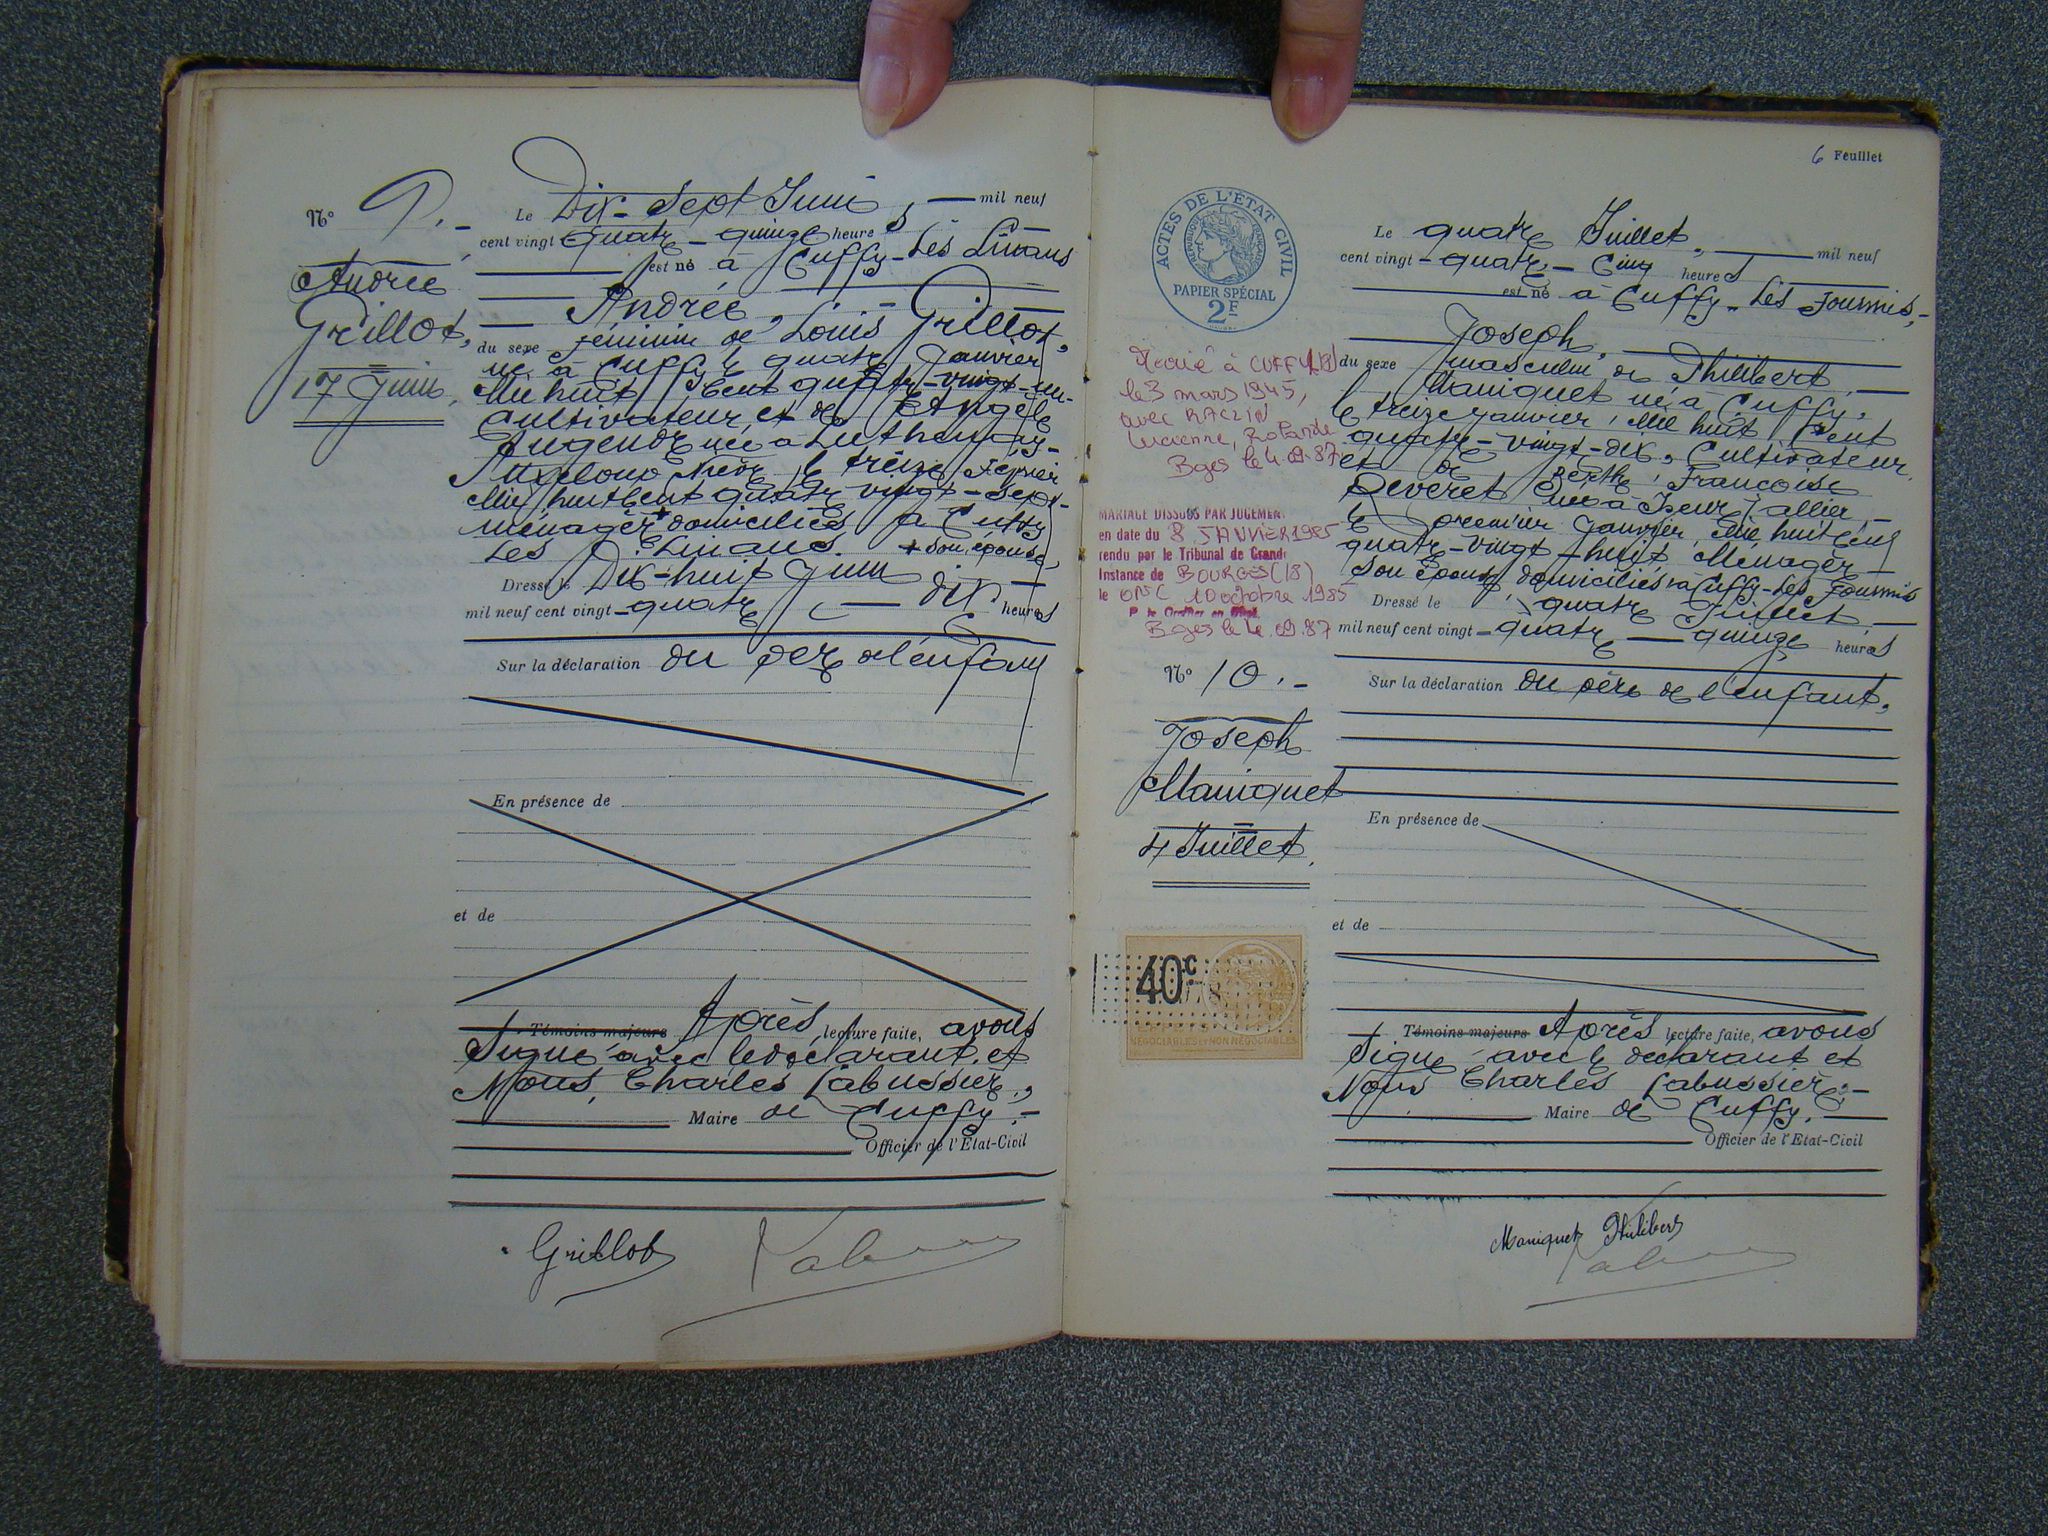 N° 9.-
Andrée
Grillot,
17 Juin,
Le Dix-sept Juin, mil neuf
cent vingt quatre quinze heures
est né à Cuffy-Les Linans
Andrée, Grillot,
du sexe féminin de Louis
né à Cuffy le quatre Janvier
Mil huit Cent quatre-vingt-un-
Cultivateur et de Angèle
Augendre née à Luthenay-
Uxeloup Nièvre le treize Février
Mil huit Cent quatre vingt-sept
ménagère + domiciliés à Cuffy
Les Linans. + son épouse,
Dressé le Dix-huit Juin
mil neuf cent vingt-quatre dix heures
Sur la déclaration du père de l'enfant
En présence de
et de
Témoins majeurs Après lecture faite, avons
Signé avec le déclarant, et
Nous, Charles Labussière,
Maire de Cuffy.-
Officier de l'Etat-Civil
Grillot
6 Feuillet
ACTES DE L'ÉTAT CIVIL
RÉPUBLIQUE FRANÇAISE
PAPIER SPÉCIAL
2F
Marié à CUFFY (18)
le 3 mars 1945,
avec RACLIN
Lucienne, Rolande
Bges le 4.09.87
MARIAGE DISSOUS PAR JUGEMENT
en date du 8 JANVIER 1985
rendu par le Tribunal de Grande
Instance de BOURGES (18)
le ONC 10 octobre 1985
P. le Greffier en Chef
Bges le 4.09.87
N° 10.-
Joseph
Maniquet
4 Juillet,
40c
NÉGOCIABLES ET NON NÉGOCIABLES
Le quatre Juillet, mil neuf
cent vingt-quatre,- Cinq heures
est né à Cuffy-Les Fourmis,-
Joseph,
du sexe masculin de Philibert
Maniquet né à Cuffy,
le treize Janvier, Mil huit Cent
quatre-vingt-dix, Cultivateur
et de Berthe, Françoise
Reveret née à Iseure Allier
le premier Janvier, Mil huit Cent
quatre-vingt-huit Ménagère
Son Epouse, domiciliés à Cuffy-Les Fourmis
Dressé le quatre Juillet
mil neuf cent vingt-quatre quinze heures
Sur la déclaration du père de l'enfant,
En présence de
et de
Témoins majeurs Après lecture faite, avons
Signé avec le déclarant et
Nous Charles Labussière;-
Maire de Cuffy.-
Officier de l'Etat-Civil
Maniquet Philibert